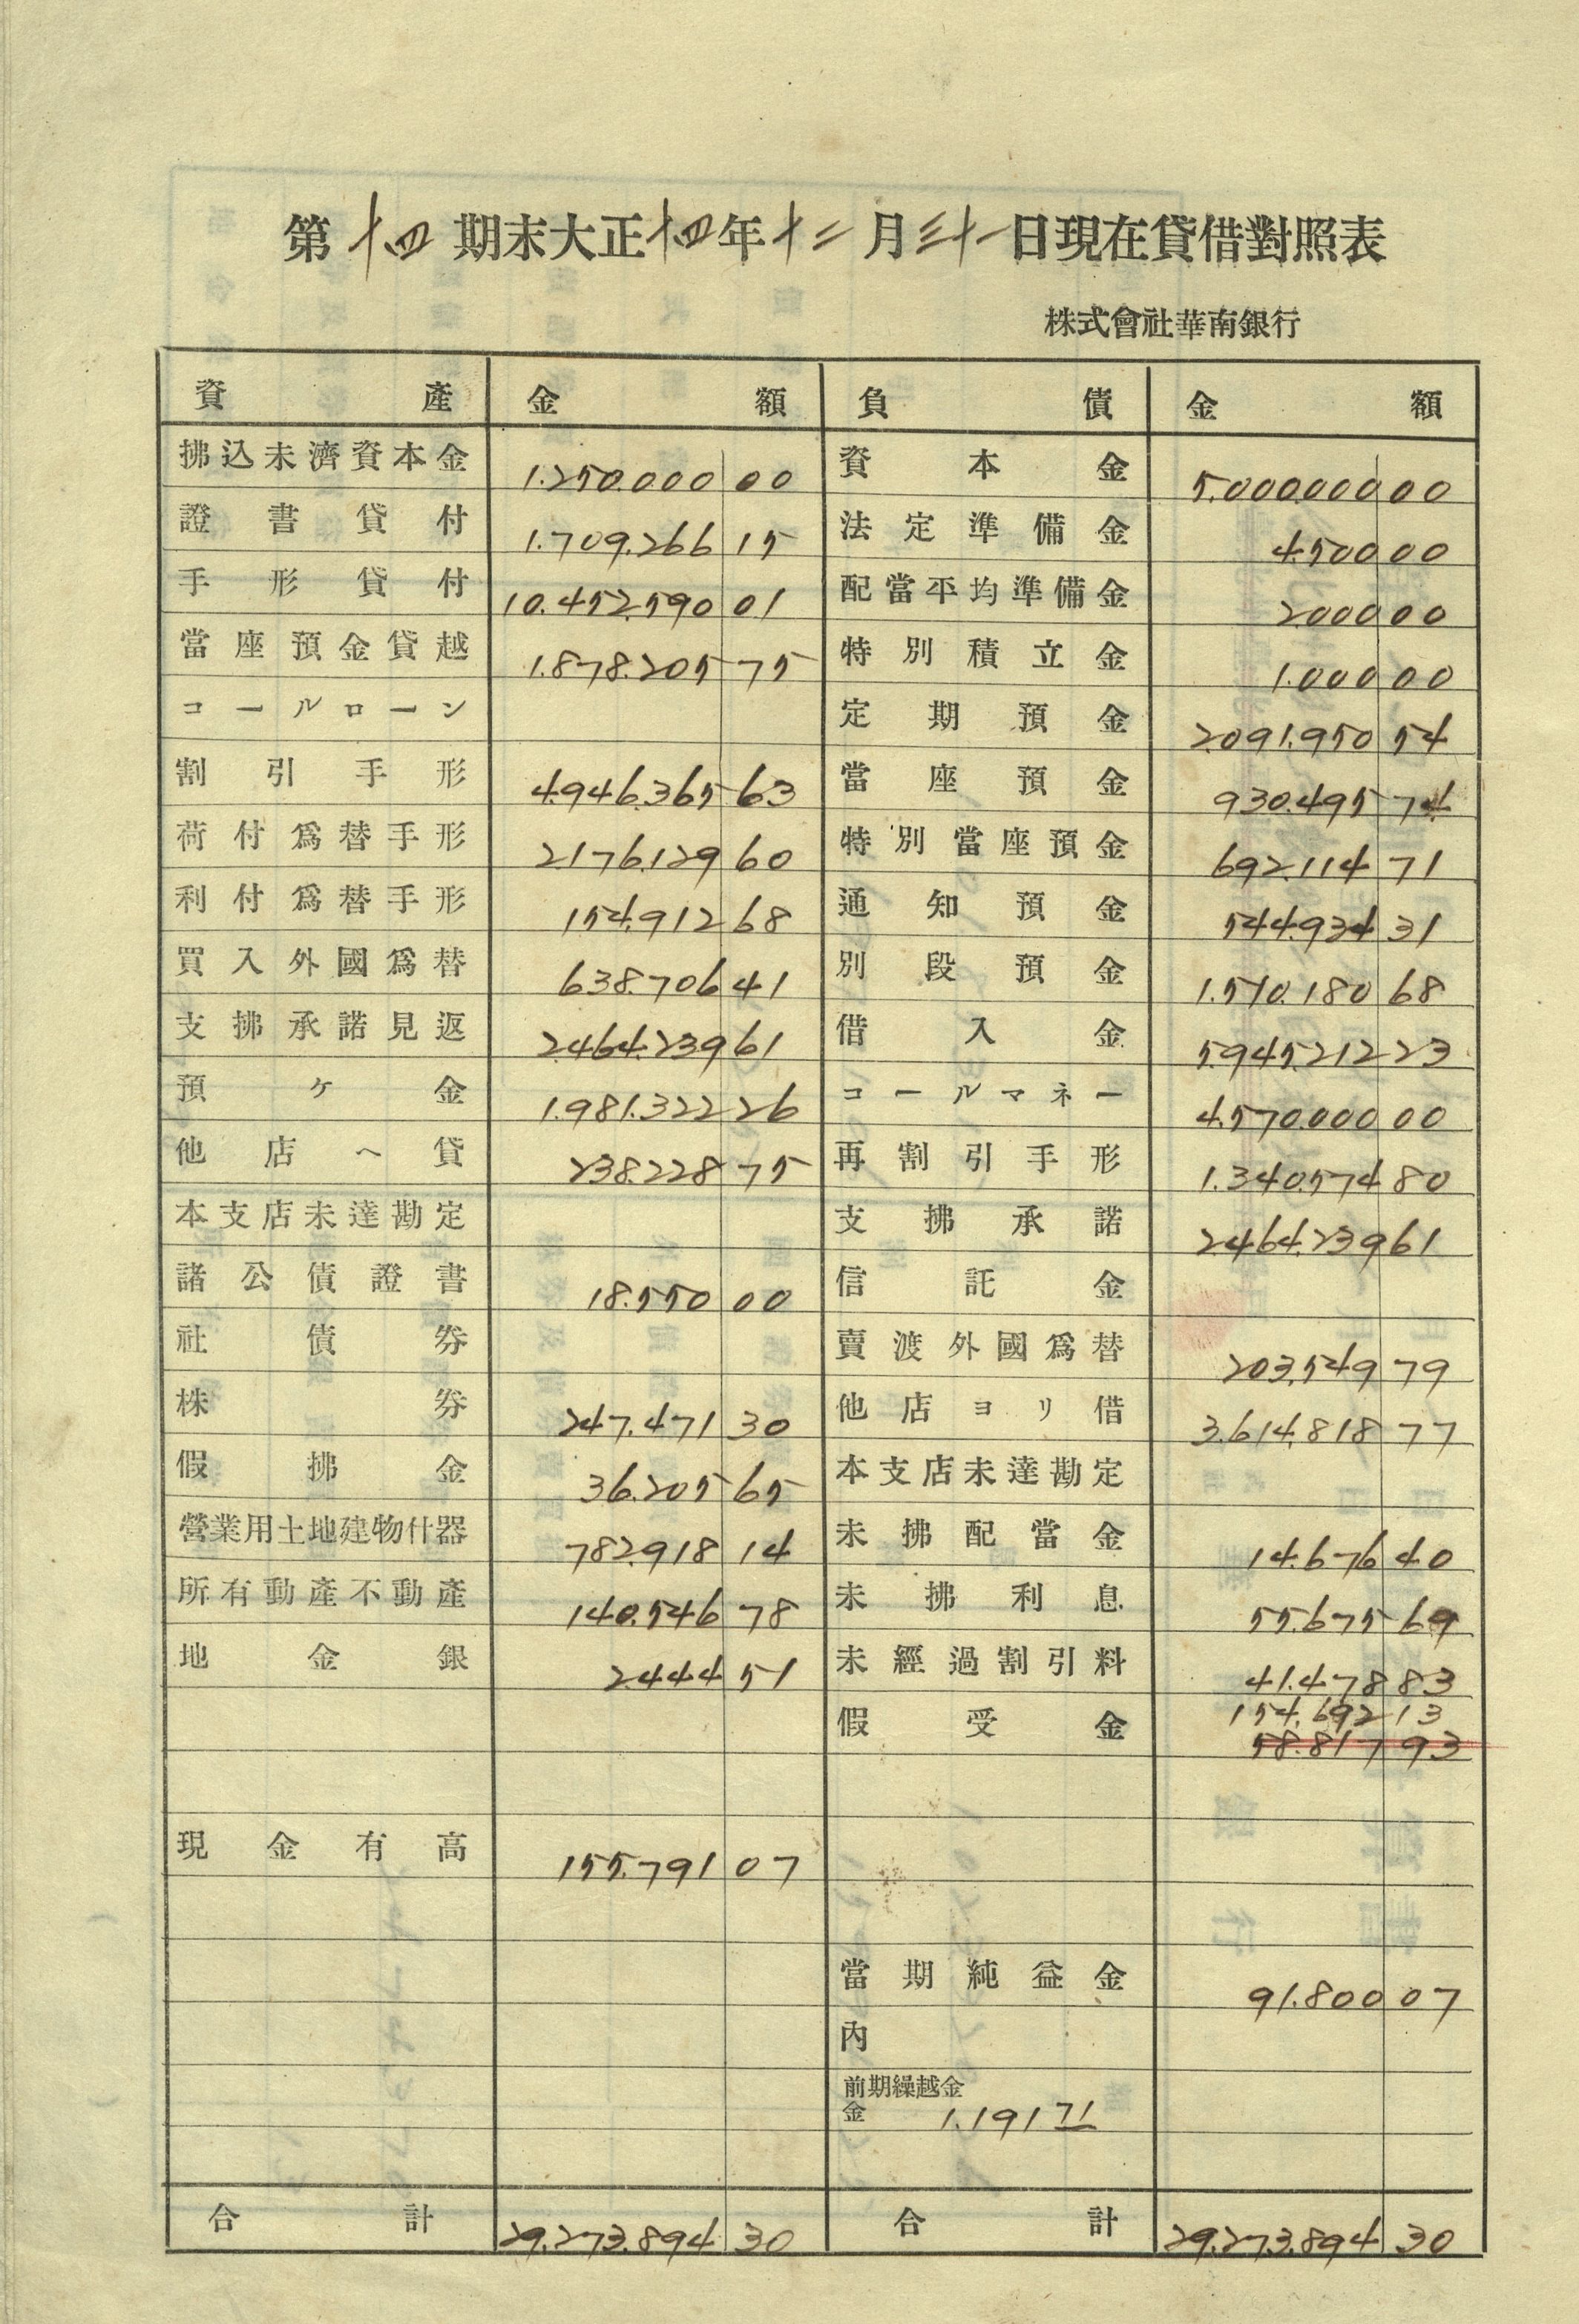 第十四期末大正十四年十二月三十一日現在貸借對照表
株式會社華南銀行
資產 金額 負債 金額
拂込未濟資本金 1.250.000 00 資本金 5.000.000 00
證書貸付 1.709.266 15 法定準備金 4.500 00
手形貸付 10.452.590 01 配當平均準備金 2.000 00
當座預金貸越 1.878.205 75 特別積立金 1.000 00
コールローン 定期預金 2.091.950 54
割引手形 4.946.365 63 當座預金 930.495 74
荷付爲替手形 2.176.129 60 特別當座預金 692.114 71
利付爲替手形 154.912 68 通知預金 544.934 31
買入外國爲替 638.706 41 別段預金 1.510.180 68
支拂承諾見返 2.464.239 61 借入金 5.945.212 23
預ケ金 1.981.322 26 コールマネー 4.570.000 00
他店ヘ貸 238.228 75 再割引手形 1.340.574 80
本支店未達勘定 支拂承諾 2.464.239 61
諸公債證書 18.550 00 信託金
社債券 賣渡外國爲替 203.549 79
株券 247.471 30 他店ヨリ借 3.614.818 77
假拂金 36.205 65 本支店未達勘定
營業用土地建物什器 782.918 14 未拂配當金 14.676 40
所有動產不動產 140.546 78 未拂利息 55.675 69
地金銀 2.444 51 未經過割引料 41.478 83
154.692 13
假受金 58.817 93
現金有高 155.791 07
當期純益金 91.800 07
內
前期繰越金
金 1.191 71
合計 29.273.894 30 合計 29.273.894 30